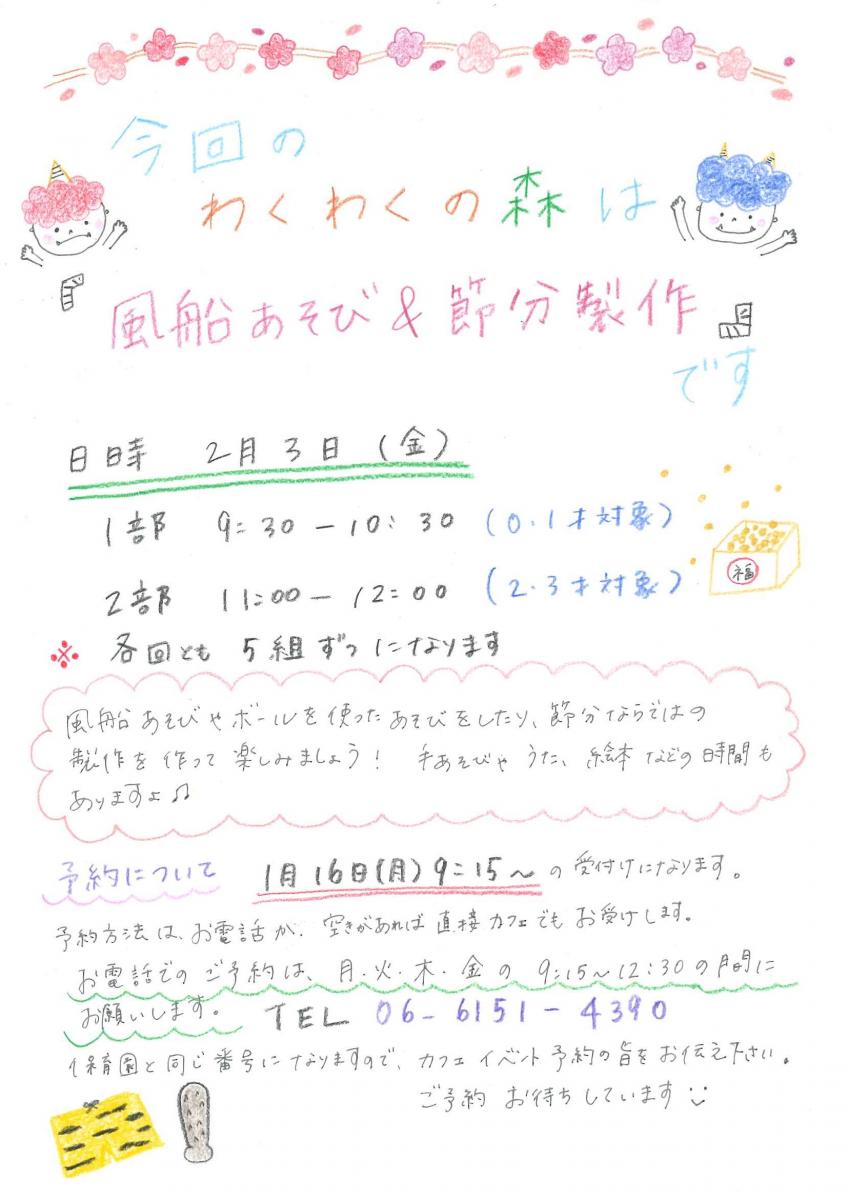 今回の
わくわくの森は
『風船あそび&節分製作』
です
日時 2月3日(金)
1部 9:30-10:30 (0.1才対象)
2部 11:00-12:00 (2.3才対象)
福
※ 各回とも 5組ずつになります
風船あそびやボールを使ったあそびをしたり、節分ならではの
製作を作って楽しみましょう! 手あそびや うた、絵本などの時間も
ありますよ♫
予約について 1月16日(月)9:15~の受付けになります。
予約方法は、お電話か、空きがあれば直接カフェでもお受けします。
お電話でのご予約は、月・火・木・金の9:15~12:30の間に
お願いします。 TEL 06-6151-4390
保育園と同じ番号になりますので、カフェイベント予約の旨をお伝え下さい。
ご予約 お待ちしています